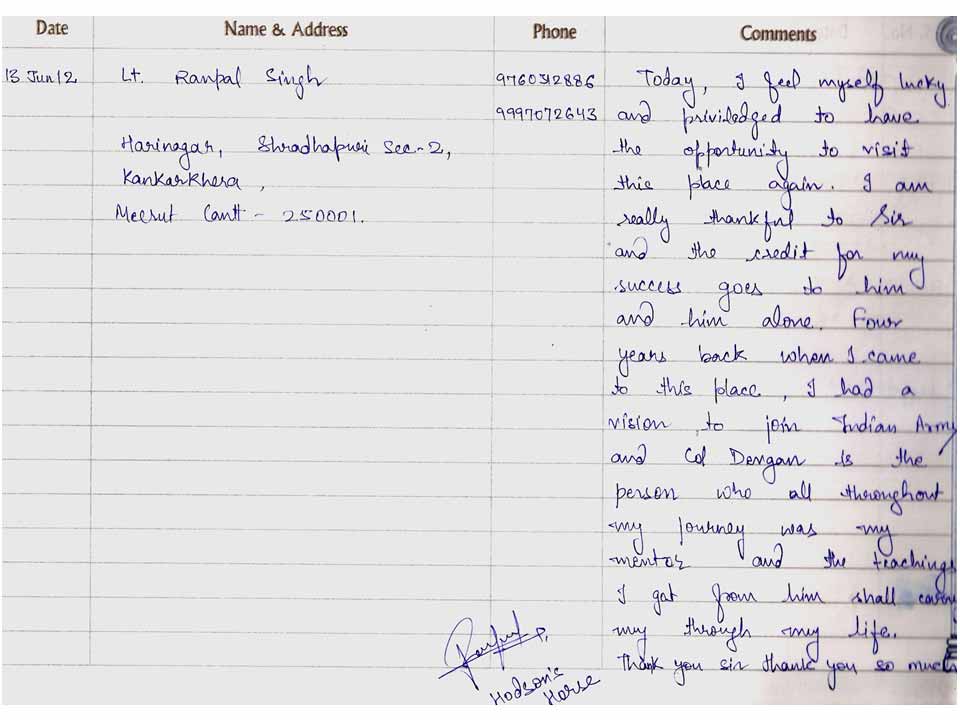 Date Name & Address Phone Comments
13 Jun 12 Lt. Ranpal Singh 9760312886 Today, I feel myself lucky
9997072643 and priviledged to have
Harinagar, Shradhapuri Sec-2, the opportunity to visit
Kankarkhera, this place again. I am
Meerut Cantt - 250001. really thankful to Sir
and the credit for my
success goes to him
and him alone. Four
years back when I came
to this place, I had a
vision to join Indian Army
and Col Dengan is the
person who all throughout
my journey was my
mentor and the teachings
I gat from him shall carry
my through my life.
Thank you sir thank you so much
Hodson's
Horse